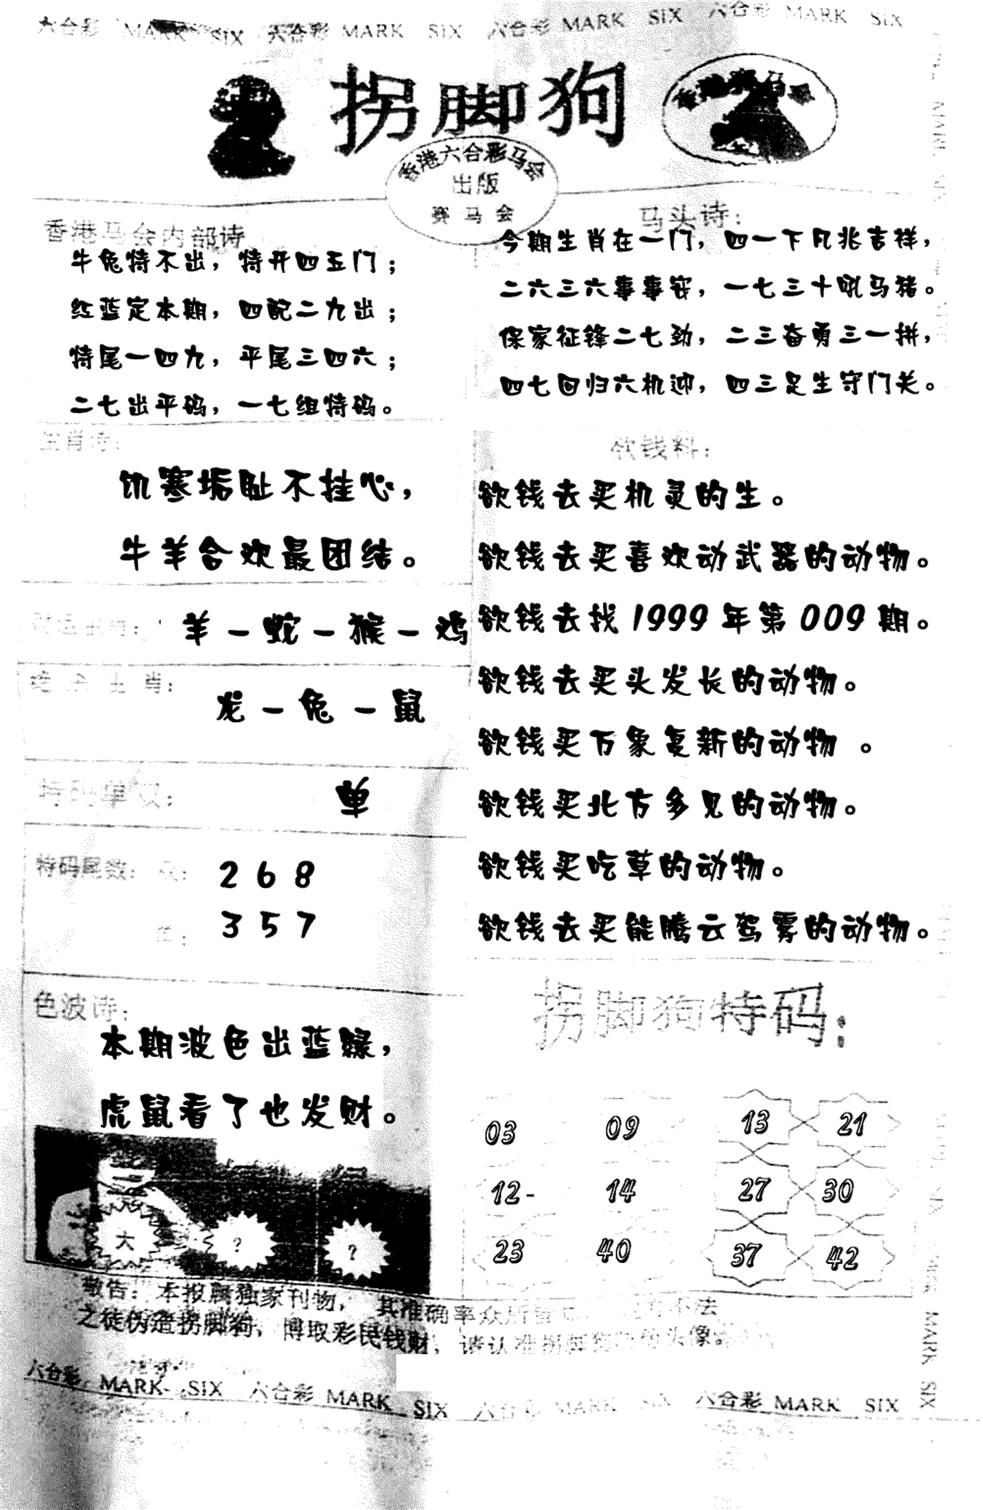 六合彩 MARK SIX 六合彩 MARK SIX 六合彩 MARK SIX 六合彩 MARK SIX
拐脚狗
香港赛马会
香港六合彩马会
出版
赛马会
香港马会内部诗
牛兔特不出，特开四五门；
红蓝定本期，四配二九出；
特尾一四九，平尾三四六；
二七出平码，一七组特码。
马头诗：
今期生肖在一门，四一下凡兆吉祥，
二六三六事事安，一七三十吼马猪。
保家征锋二七劲，二三奋勇三一拼，
四七回归六机迎，四三足生守门关。
生肖诗：
饥寒垢耻不挂心，
牛羊合欢最团结。
羊－蛇－猴－鸡
绝杀生肖：
龙－兔－鼠
特码单双：
单
特码尾数：双：
2 6 8
单：
3 5 7
色波诗：
本期波色出蓝绿，
虎鼠看了也发财。
大
?
?
欲钱料：
欲钱去买机灵的生。
欲钱去买喜欢动武器的动物。
欲钱去找 1999 年第 009 期。
欲钱去买头发长的动物。
欲钱买万象复新的动物 。
欲钱买北方多见的动物。
欲钱买吃草的动物。
欲钱去买能腾云驾雾的动物。
拐脚狗特码：
03 09 13 21
12- 14 27 30
23 40 37 42
敬告：本报属独家刊物，其准确率众所 不法
之徒伪造拐脚狗，博取彩民钱财，请认准拐脚狗 头像。
六合彩 MARK SIX 六合彩 MARK SIX 六合彩 MARK SIX 六合彩 MARK SIX
MARK SIX